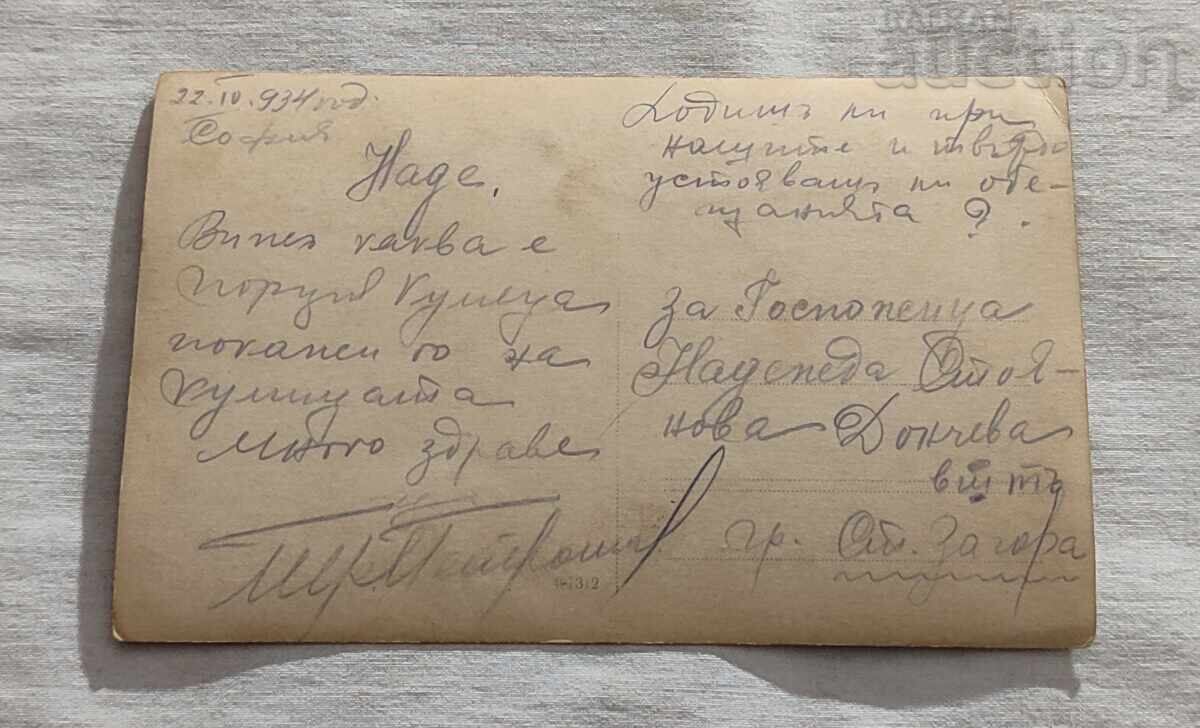 22.IV.934 год.
София
Наде,
каква е
порция Кумеца
покажи го на
Кумицата
много здраве
Ходишъ ли при
нашите и твърдо
устоявашъ ли обе-
щанията ?.
За Госпожица
Надежда Стоя-
нова Дончева
гр. Ст. Загора